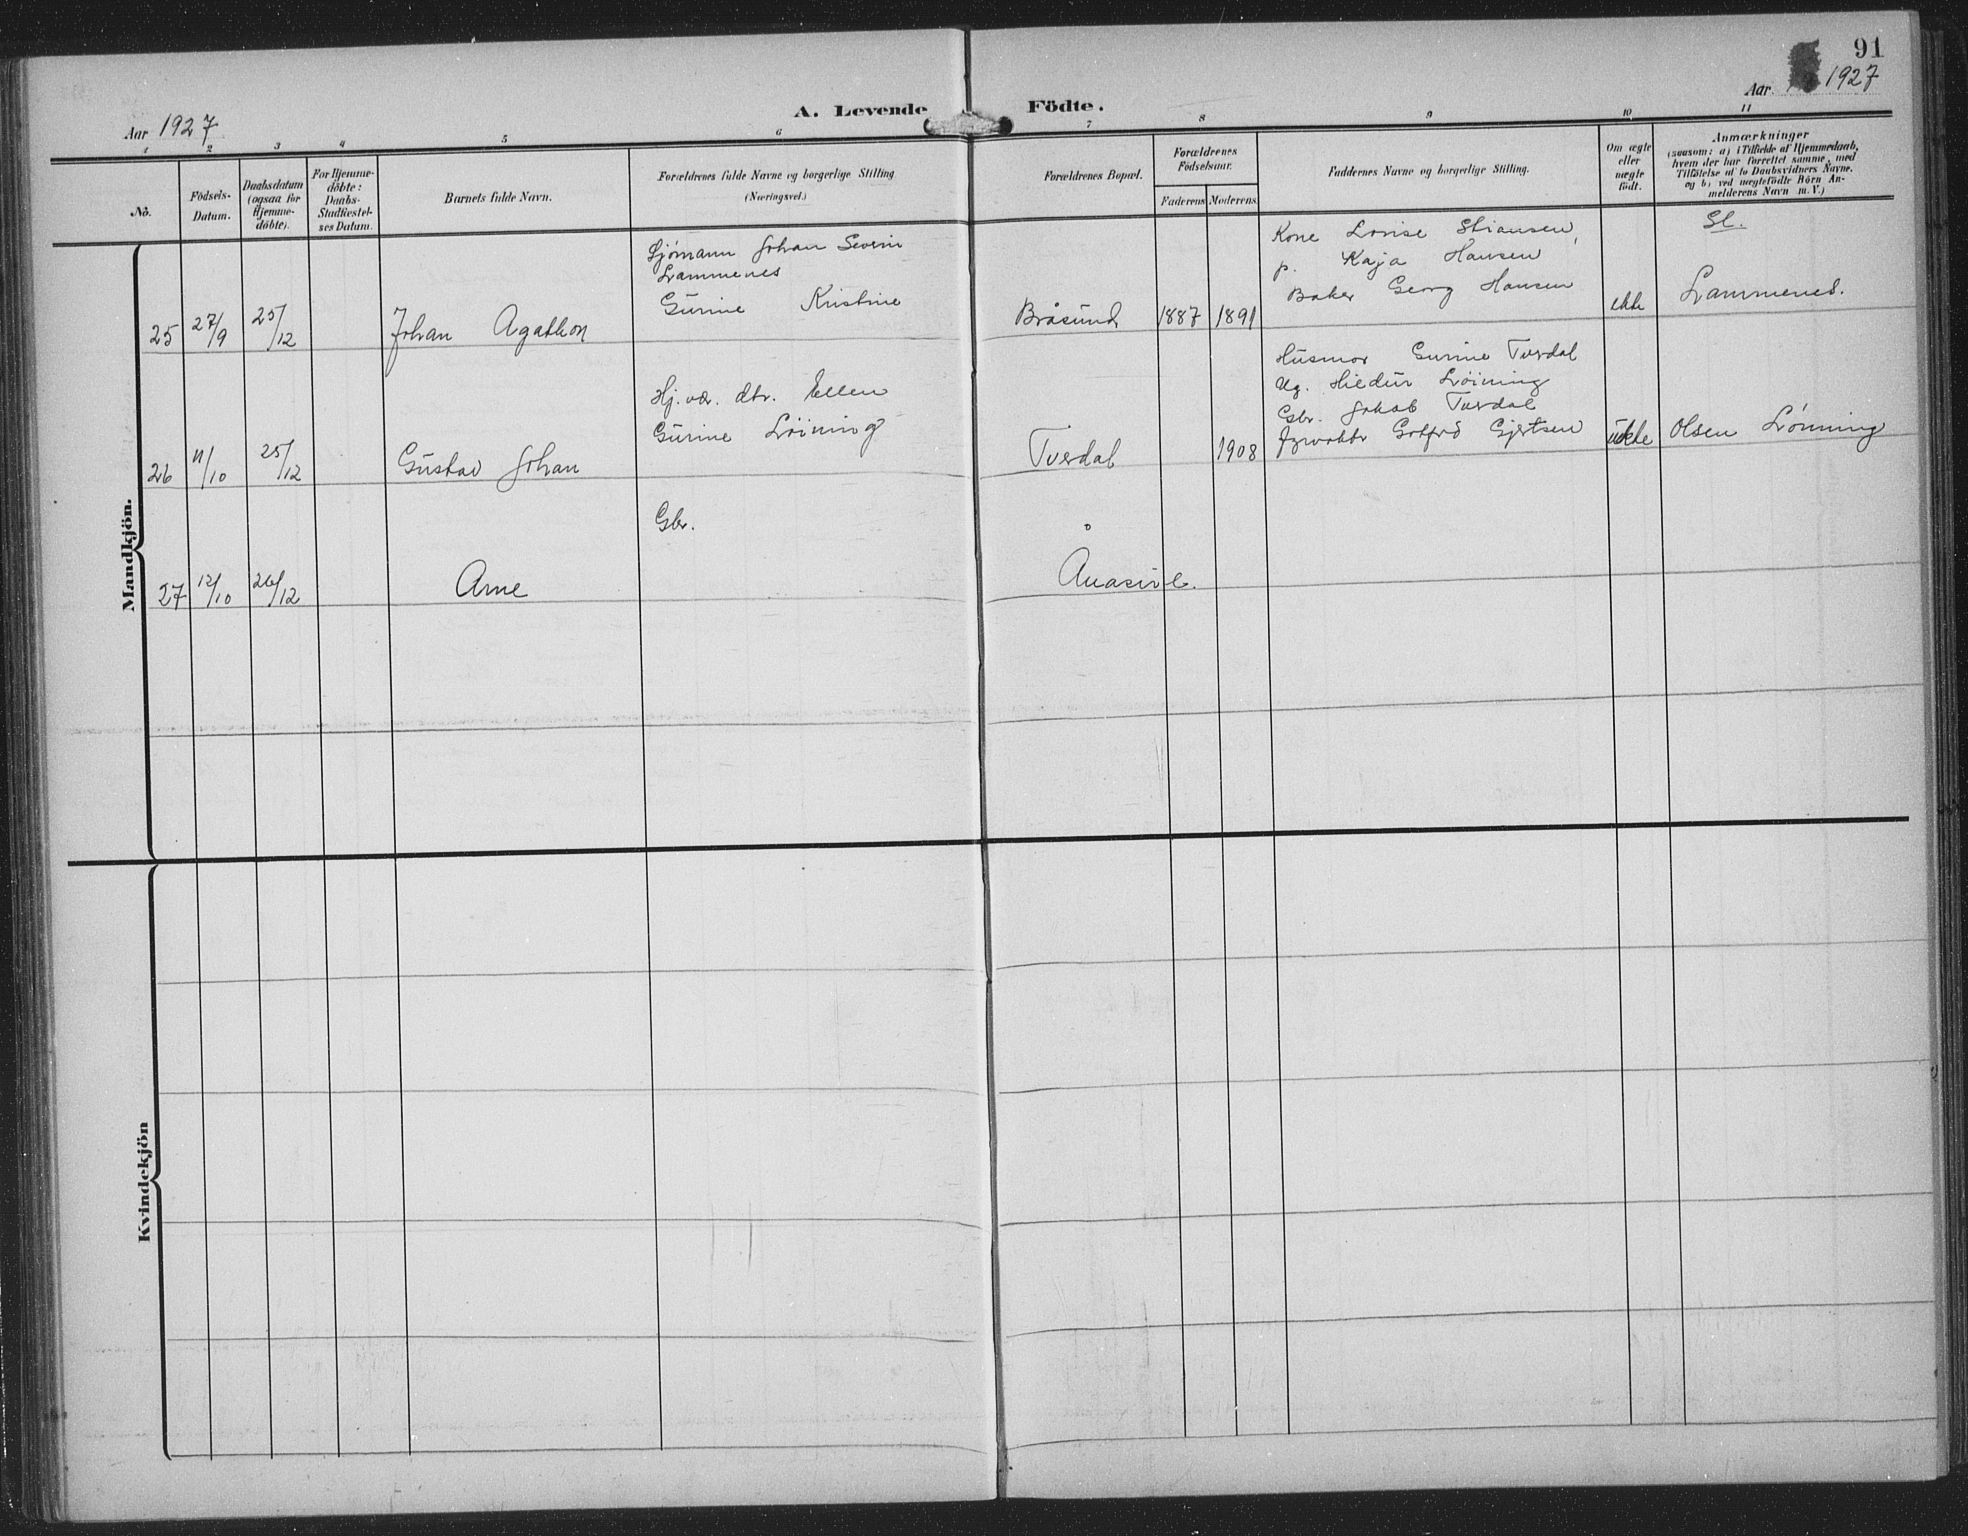 91
Aar 1927
A. Levende Födte.
Aar 1927
1 2 3 4 5 6 7 8 9 10 11
Nö.
Födsels-
Datum.
Daabsdatum
(ogsaa for
Hjemme-
döbte).
For Hjemme-
döbte:
Daabs-
Stadfæstel-
ses Datum.
Barnets fulde Navn.
Forældrenes fulde Navne og borgerlige Stilling
(Næringsvei.)
Forældrenes Bopæl.
Forældrenes
Födselsaar.
Faderens Moderens
Faddernes Navne og borgerlige Stilling.
Om ægte
eller
uægte
födt.
Anmærkninger
(saasom: a) i Tilfælde af Hjemmedaab,
hvem der har forrettet samme, med
Tilföielse af to Daabsvidners Navne.
og b) ved uægtefödte Börn An-
melderens Navn m. V.)
Mandkjön.
25
27/9
25/12
Johan Agathon
Sjömann Johan Severin
Lammenes
Gurine Kristine
Bråsund
1887 1891
Kone Lovise Stiansen,
p. Kaja Hansen
Baker Georg Hansen
ekte
Sl.
Lammenes.
26
11/10
25/12
Gustav Johan
Hj. vær. dtr. Ellen
Gurine Löining
Tverdal
1908
Husmor Gurine Tverdal
Ug. Hildur Löining
Gbr. Jakob Tverdal
Gotfred Gjertsen
uekte
Olsen Lönning
27
12/10
26/12
Arne
Gbr.
Ånasire.
Kvindekjön